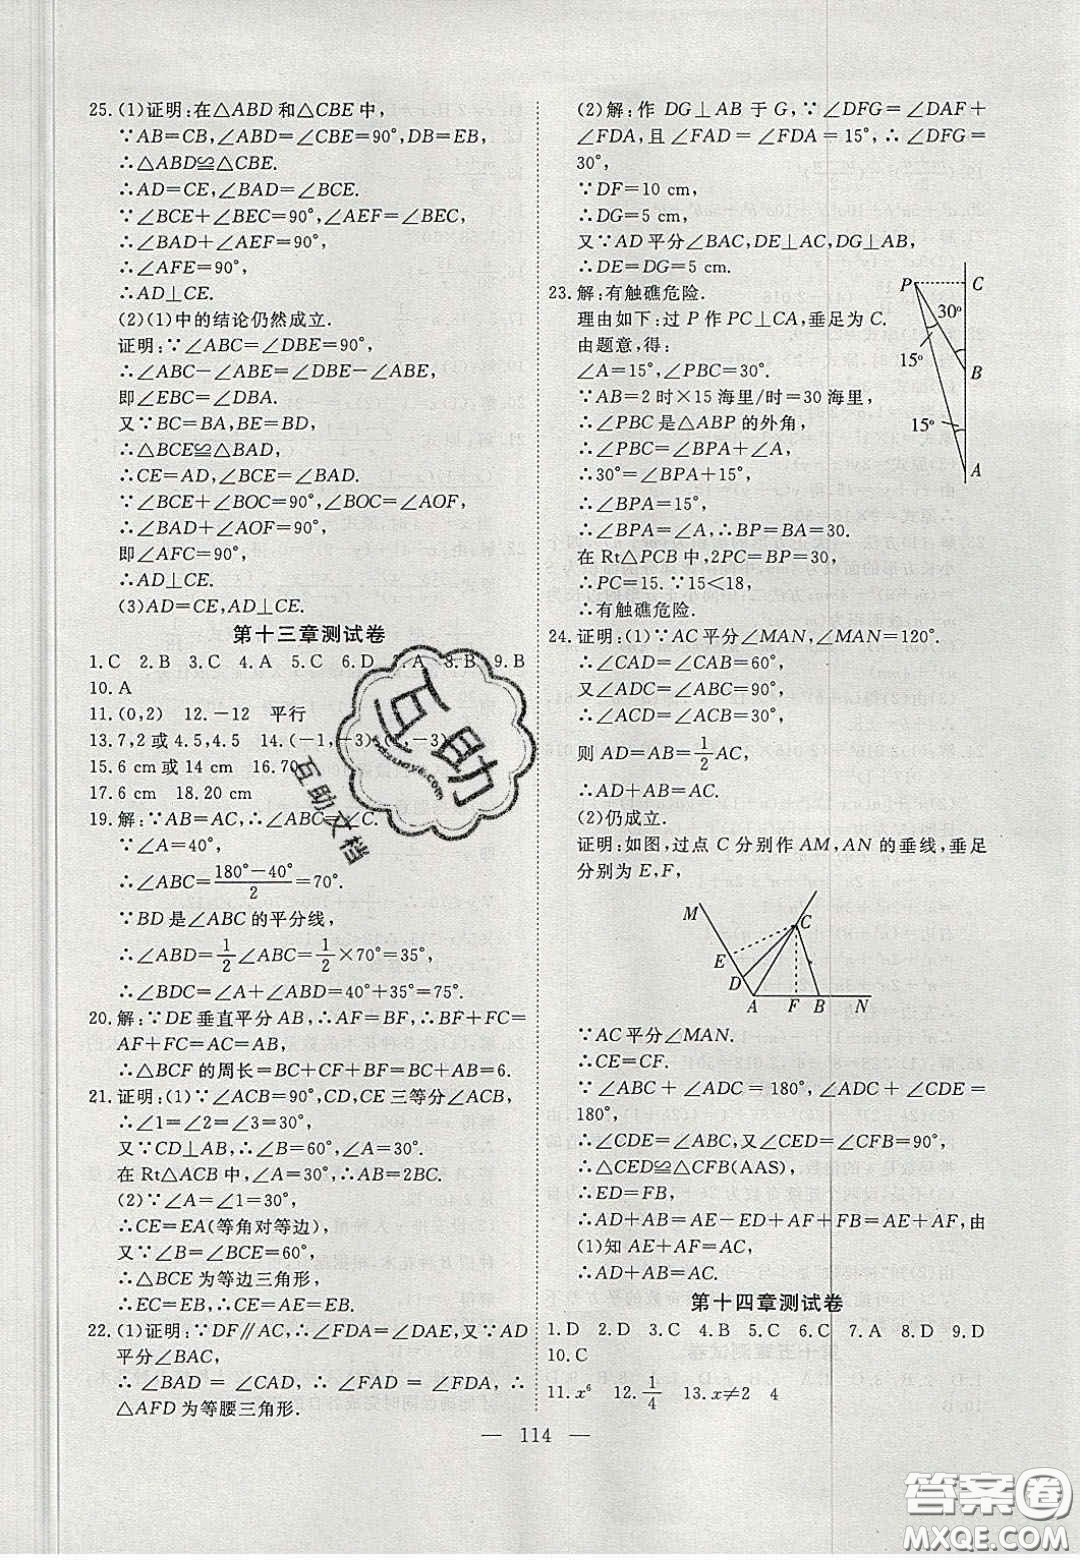 25. (1)证明:在△ABD 和△CBE 中,
∵AB=CB,∠ABD=∠CBE=90°,DB=EB,
∴△ABD≌△CBE.
∴AD=CE,∠BAD=∠BCE.
∵∠BCE+∠BEC=90°,∠AEF=∠BEC,
∴∠BAD+∠AEF=90°,
∴∠AFE=90°,
∴AD⊥CE.
(2)(1)中的结论仍然成立.
证明:∵∠ABC=∠DBE=90°,
∴∠ABC-∠ABE=∠DBE-∠ABE,
即∠EBC=∠DBA.
又∵BC=BA,BE=BD,
∴△BCE≌△BAD,
∴CE=AD,∠BCE=∠BAD.
∵∠BCE+∠BOC=90°,∠BOC=∠AOF,
∴∠BAD+∠AOF=90°,
即∠AFC=90°,
∴AD⊥CE.
(3)AD=CE,AD⊥CE.
第十三章测试卷
1.C 2.B 3.C 4.A 5.C 6.D 7.A 8.B 9.B
10.A
11.(0,2) 12.-12 平行
13.7,2或4.5,4.5 14.(-1,-3) ,-3)
15.6 cm或14 cm 16.70
17.6 cm 18.20 cm
19.解:∵AB=AC,∴∠ABC=∠C.
∵∠A=40°,
∴∠ABC=(180°-40°)/2=70°.
∵BD 是∠ABC 的平分线,
∴∠ABD=1/2∠ABC=1/2×70°=35°,
∴∠BDC=∠A+∠ABD=40°+35°=75°.
20.解:∵DE 垂直平分 AB,∴AF=BF,∴BF+FC=
AF+FC=AC=AB,
∴△BCF 的周长=BC+CF+BF=BC+AB=6.
21.证明:(1)∵∠ACB=90°,CD,CE 三等分∠ACB,
∴∠1=∠2=∠3=30°,
又∵CD⊥AB,∴∠B=60°,∠A=30°.
在 Rt△ACB 中,∠A=30°,∴AB=2BC.
(2)∵∠A=∠1=30°,
∴CE=EA(等角对等边),
又∵∠B=∠BCE=60°,
∴△BCE 为等边三角形,
∴EC=EB,∴CE=AE=EB.
22.(1)证明:∵DF∥AC,∴∠FDA=∠DAE,又∵AD
平分∠BAC,
∴∠BAD=∠CAD,∴∠FAD=∠FDA,∴
△AFD 为等腰三角形.
(2)解:作 DG⊥AB 于 G,∵∠DFG=∠DAF+
∠FDA,且∠FAD=∠FDA=15°,∴∠DFG=
30°,
∵DF=10 cm,
∴DG=5 cm,
又∵AD 平分∠BAC,DE⊥AC,DG⊥AB,
∴DE=DG=5 cm.
23.解:有触礁危险.
理由如下:过 P 作 PC⊥CA,垂足为 C.
由题意,得:
∠A=15°,∠PBC=30°.
∵AB=2时×15海里/时=30海里,
∵∠PBC 是△ABP 的外角,
∴∠PBC=∠BPA+∠A,
∴30°=∠BPA+15°,
∴∠BPA=15°,
∴∠BPA=∠A,∴BP=BA=30.
在 Rt△PCB 中,2PC=BP=30,
∴PC=15.∵15<18,
∴有触礁危险.
P C
30°
15° B
15°
A
24.证明:(1)∵AC 平分∠MAN,∠MAN=120°.
∴∠CAD=∠CAB=60°,
又∠ADC=∠ABC=90°,
∴∠ACD=∠ACB=30°,
则 AD=AB=1/2AC,
∴AD+AB=AC.
(2)仍成立.
证明:如图,过点 C 分别作 AM,AN 的垂线,垂足
分别为 E,F,
M
C
E
D
A F B N
∵AC 平分∠MAN.
∴CE=CF.
∵∠ABC+∠ADC=180°,∠ADC+∠CDE=
180°,
∴∠CDE=∠ABC,又∠CED=∠CFB=90°,
∴△CED≌△CFB(AAS),
∴ED=FB,
∴AD+AB=AE-ED+AF+FB=AE+AF,由
(1)知 AE+AF=AC,
∴AD+AB=AC.
第十四章测试卷
1.D 2.D 3.C 4.B 5.C 6.C 7.A 8.D 9.D
10.C
11.x⁶ 12.1/4 13.x≠2 4
— 114 —
互助
互助文档
答案圈
MXQE.COM